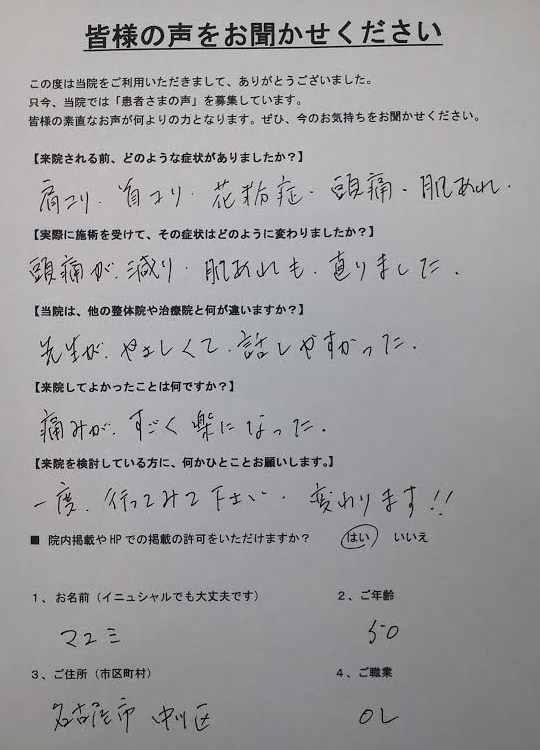 皆様の声をお聞かせください
この度は当院をご利用いただきまして、ありがとうございました。
只今、当院では「患者さまの声」を募集しています。
皆様の素直なお声が何よりの力となります。ぜひ、今のお気持ちをお聞かせください。
【来院される前、どのような症状がありましたか?】
肩コリ・首コリ・花粉症・頭痛・肌あれ・
【実際に施術を受けて、その症状はどのように変わりましたか?】
頭痛が、減り・肌あれも、直りました.
【当院は、他の整体院や治療院と何が違いますか?】
先生が、やさしくて、話しやすかった.
【来院してよかったことは何ですか?】
痛みが、すごく楽になった.
【来院を検討している方に、何かひとことお願いします。】
一度、行ってみて下さい・変わります!!
■ 院内掲載やHPでの掲載の許可をいただけますか? はい いいえ
1、お名前(イニュシャルでも大丈夫です) 2、ご年齢
マユミ 50
3、ご住所(市区町村) 4、ご職業
名古屋市 中川区 OL